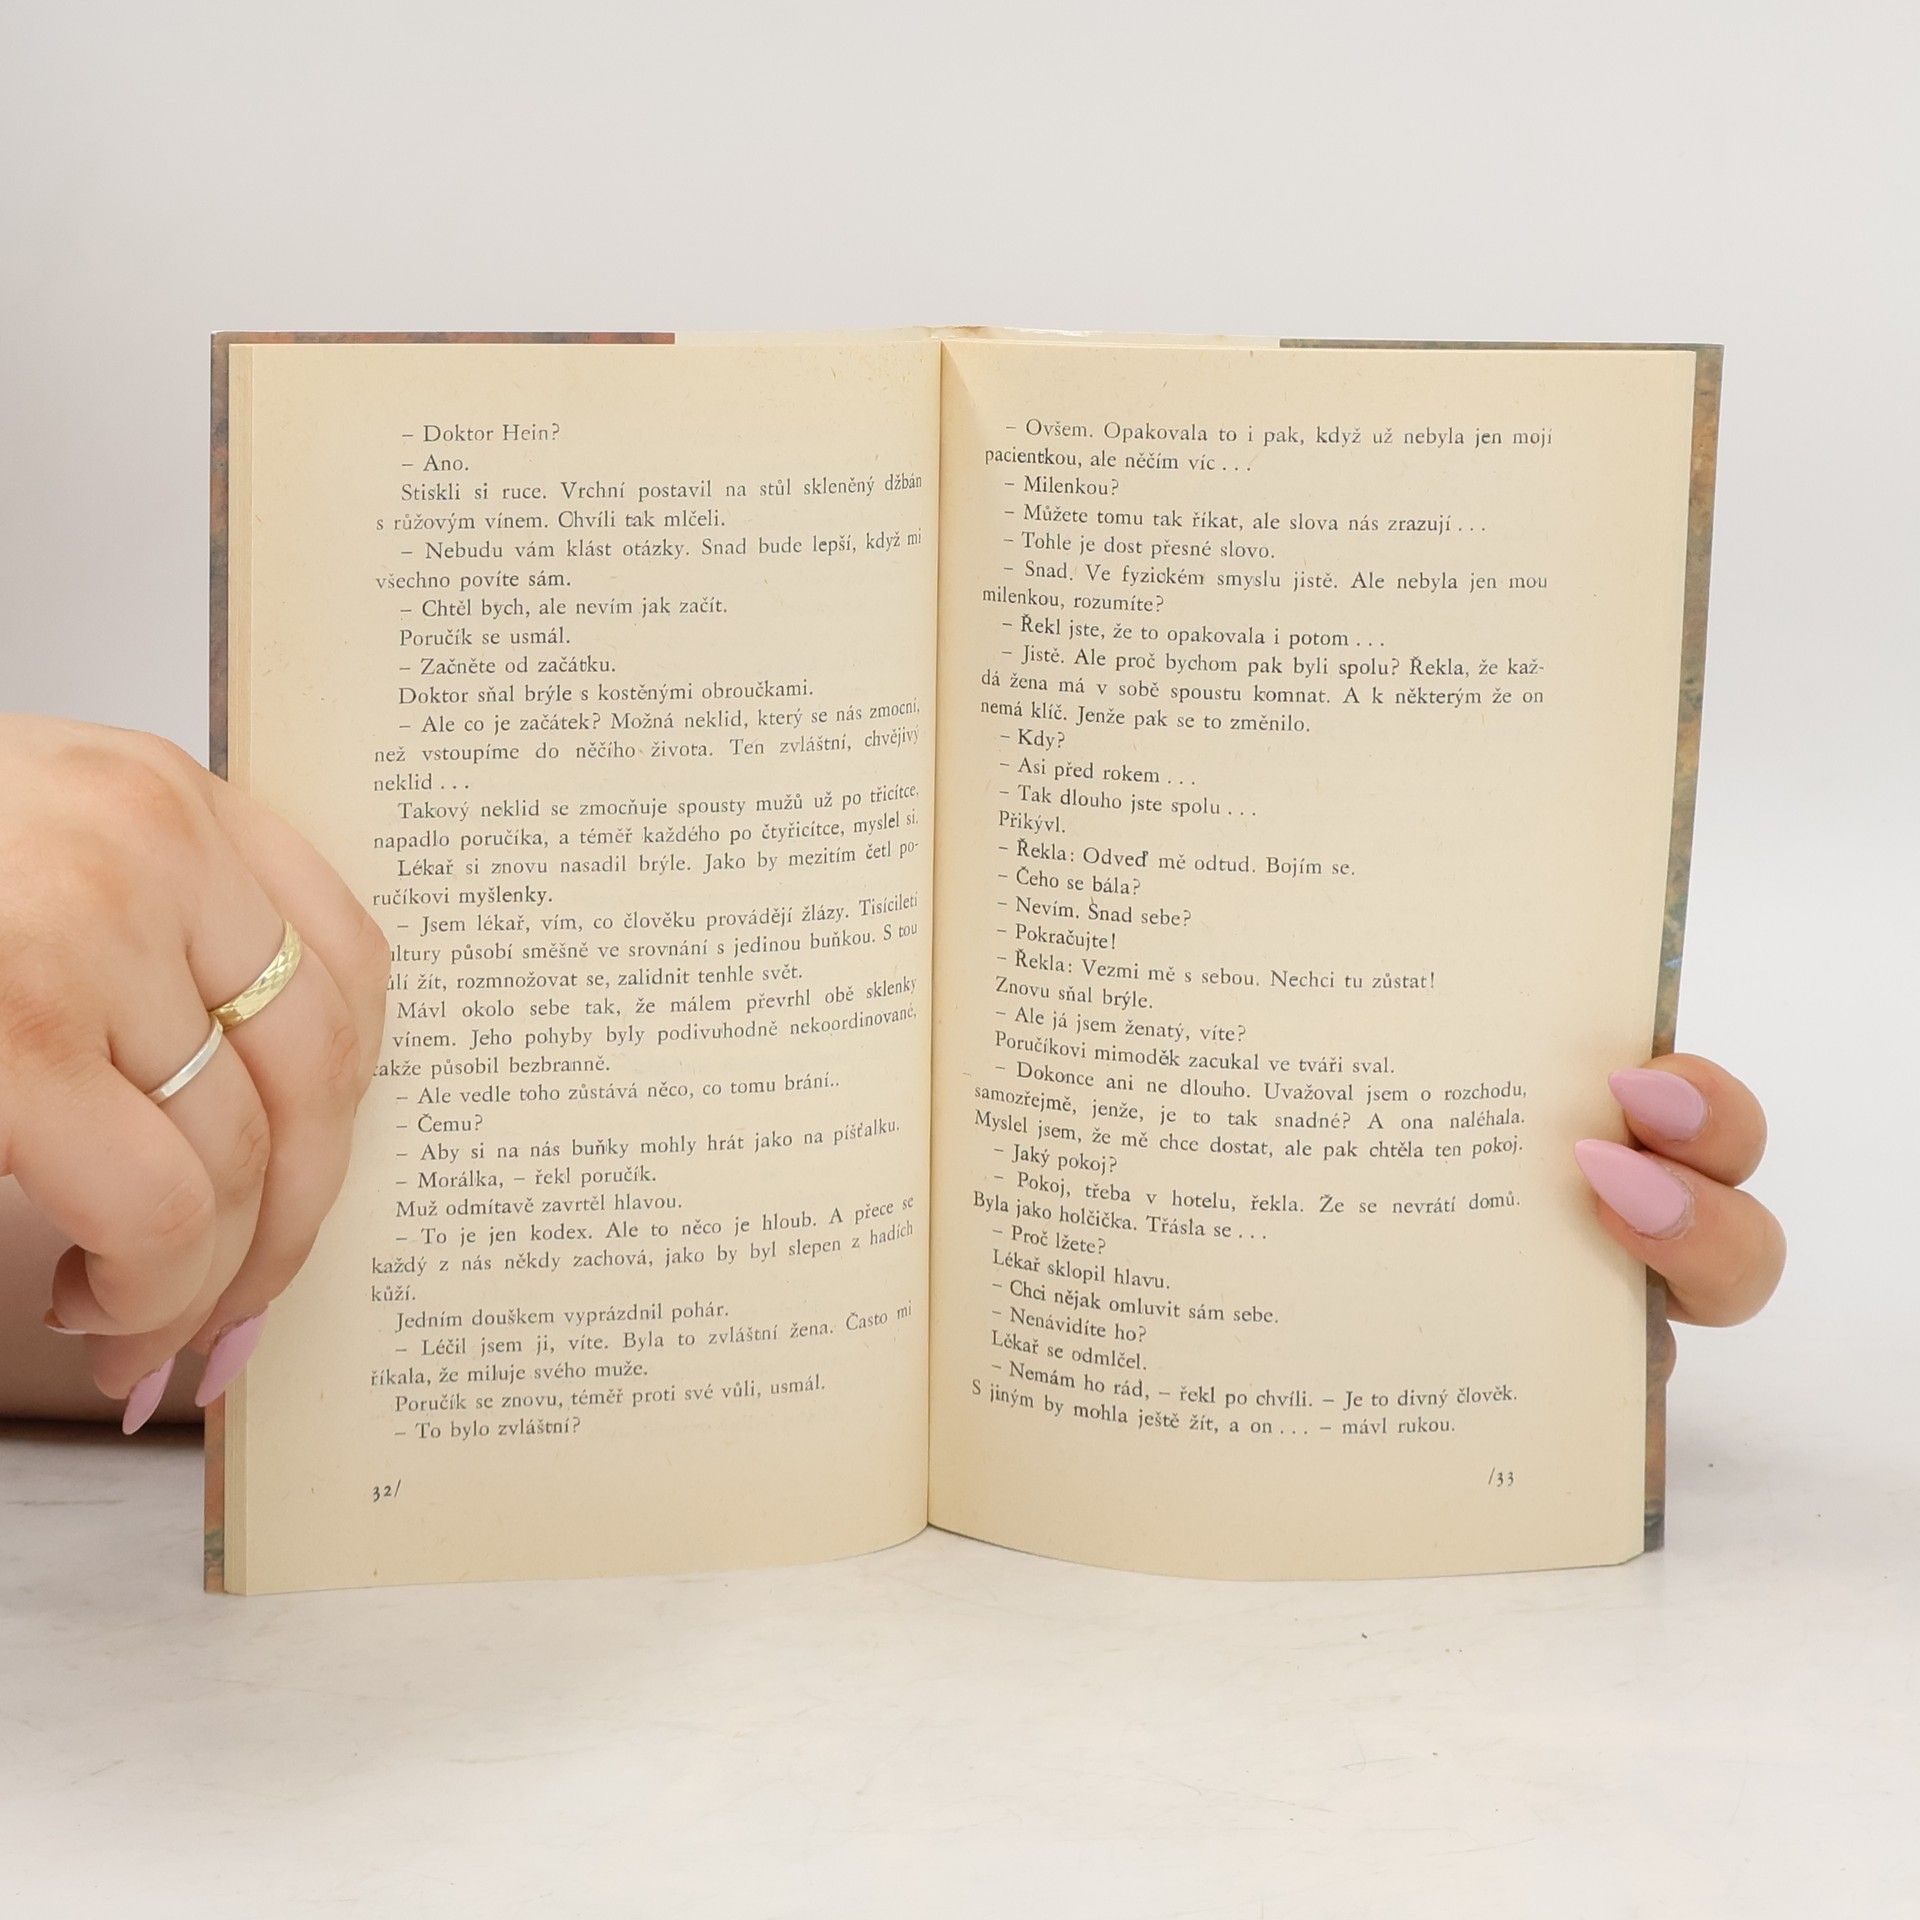 – Doktor Hein?
– Ano.
Stiskli si ruce. Vrchní postavil na stůl skleněný džbán
s růžovým vínem. Chvíli tak mlčeli.
– Nebudu vám klást otázky. Snad bude lepší, když mi
všechno povíte sám.
– Chtěl bych, ale nevím jak začít.
Poručík se usmál.
– Začněte od začátku.
Doktor sňal brýle s kostěnými obroučkami.
– Ale co je začátek? Možná neklid, který se nás zmocní,
než vstoupíme do něčího života. Ten zvláštní, chvějivý
neklid . . .
Takový neklid se zmocňuje spousty mužů už po třicítce,
napadlo poručíka, a téměř každého po čtyřicítce, myslel si.
Lékař si znovu nasadil brýle. Jako by mezitím četl po-
ručíkovi myšlenky.
– Jsem lékař, vím, co člověku provádějí žlázy. Tisíciletí
ultury působí směšně ve srovnání s jedinou buňkou. S tou
ůlí žít, rozmnožovat se, zalidnit tenhle svět.
Mávl okolo sebe tak, že málem převrhl obě sklenky
vínem. Jeho pohyby byly podivuhodně nekoordinované,
takže působil bezbranně.
– Ale vedle toho zůstává něco, co tomu brání..
– Čemu?
– Aby si na nás buňky mohly hrát jako na píšťalku.
– Morálka, – řekl poručík.
Muž odmítavě zavrtěl hlavou.
– To je jen kodex. Ale to něco je hloub. A přece se
každý z nás někdy zachová, jako by byl slepen z hadích
kůží.
Jedním douškem vyprázdnil pohár.
– Léčil jsem ji, víte. Byla to zvláštní žena. Často mi
říkala, že miluje svého muže.
Poručík se znovu, téměř proti své vůli, usmál.
– To bylo zvláštní?
32/
– Ovšem. Opakovala to i pak, když už nebyla jen mojí
pacientkou, ale něčím víc . . .
– Milenkou?
– Můžete tomu tak říkat, ale slova nás zrazují . . .
– Tohle je dost přesné slovo.
– Snad. Ve fyzickém smyslu jistě. Ale nebyla jen mou
milenkou, rozumíte?
– Řekl jste, že to opakovala i potom . . .
– Jistě. Ale proč bychom pak byli spolu? Řekla, že kaž-
dá žena má v sobě spoustu komnat. A k některým že on
nemá klíč. Jenže pak se to změnilo.
– Kdy?
– Asi před rokem . . .
– Tak dlouho jste spolu . . .
Přikývl.
– Řekla: Odveď mě odtud. Bojím se.
– Čeho se bála?
– Nevím. Snad sebe?
– Pokračujte!
– Řekla: Vezmi mě s sebou. Nechci tu zůstat!
Znovu sňal brýle.
– Ale já jsem ženatý, víte?
Poručíkovi mimoděk zacukal ve tváři sval.
– Dokonce ani ne dlouho. Uvažoval jsem o rozchodu,
samozřejmě, jenže, je to tak snadné? A ona naléhala.
Myslel jsem, že mě chce dostat, ale pak chtěla ten pokoj.
– Jaký pokoj?
– Pokoj, třeba v hotelu, řekla. Že se nevrátí domů.
Byla jako holčička. Třásla se . . .
– Proč lžete?
Lékař sklopil hlavu.
– Chci nějak omluvit sám sebe.
– Nenávidíte ho?
Lékař se odmlčel.
– Nemám ho rád, – řekl po chvíli. – Je to divný člověk.
S jiným by mohla ještě žít, a on . . . – mávl rukou.
/33